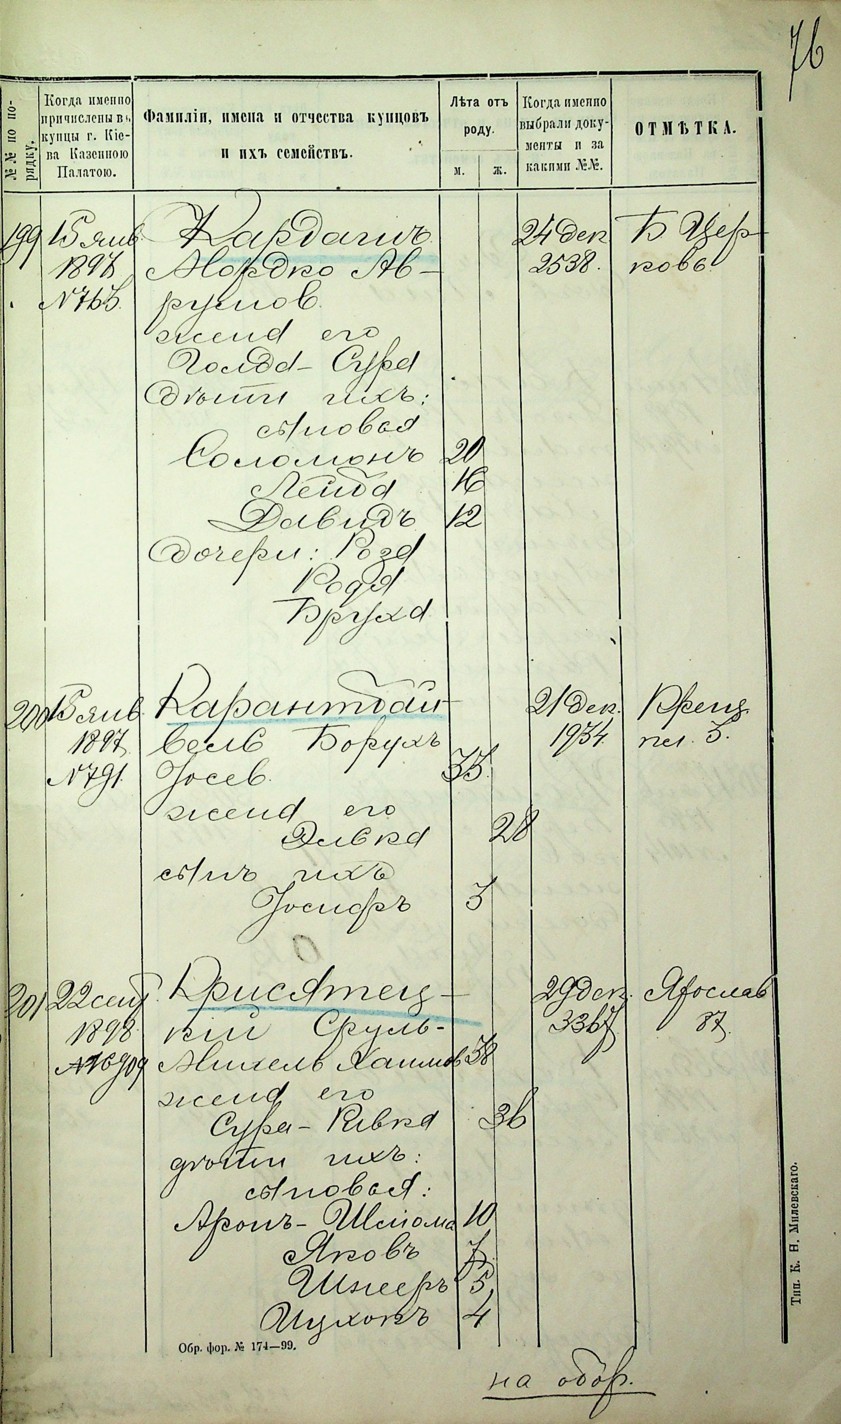 76
№№ по по-
рядку.
Когда именно
причислены въ
купцы г. Кіе-
ва Казенною
Палатою.
Фамиліи, имена и отчества купцовъ
и ихъ семействъ.
Лѣта отъ
роду.
м. ж.
Когда именно
выбрали доку-
менты и за
какими №№.
ОТМѢТКА.
199 15 янв. Кардашъ 24 дек Б Цер-
1897 Мордко Ав- 2538. ковь
румов
жена его
Гольда-Сура
дѣти ихъ:
сыновья
Соломонъ 20
Лейба 16
Давидъ 12
дочери: Роза
Родя
Бруха
200 15 янв Карантбай- 21 дек. Крещ.
1897 вель Борухъ 1934. пл. 3.
N 791 Іосев. 35
жена его
Элька 28
сынъ ихъ
Іосифъ 3
201 22 сент. Крисятец- 29 дек. Ярослав
1898 кій Сруль- 37
Михель Хаимов 38
жена его
Сура-Ривка 36
дѣти ихъ:
сыновья:
Аронъ-Шлиома 10
Яковъ 7
Шнееръ 5
Нухонъ 4
Обр. фор. № 174—99.
на обор.
Тип. К. Н. Милевскаго.